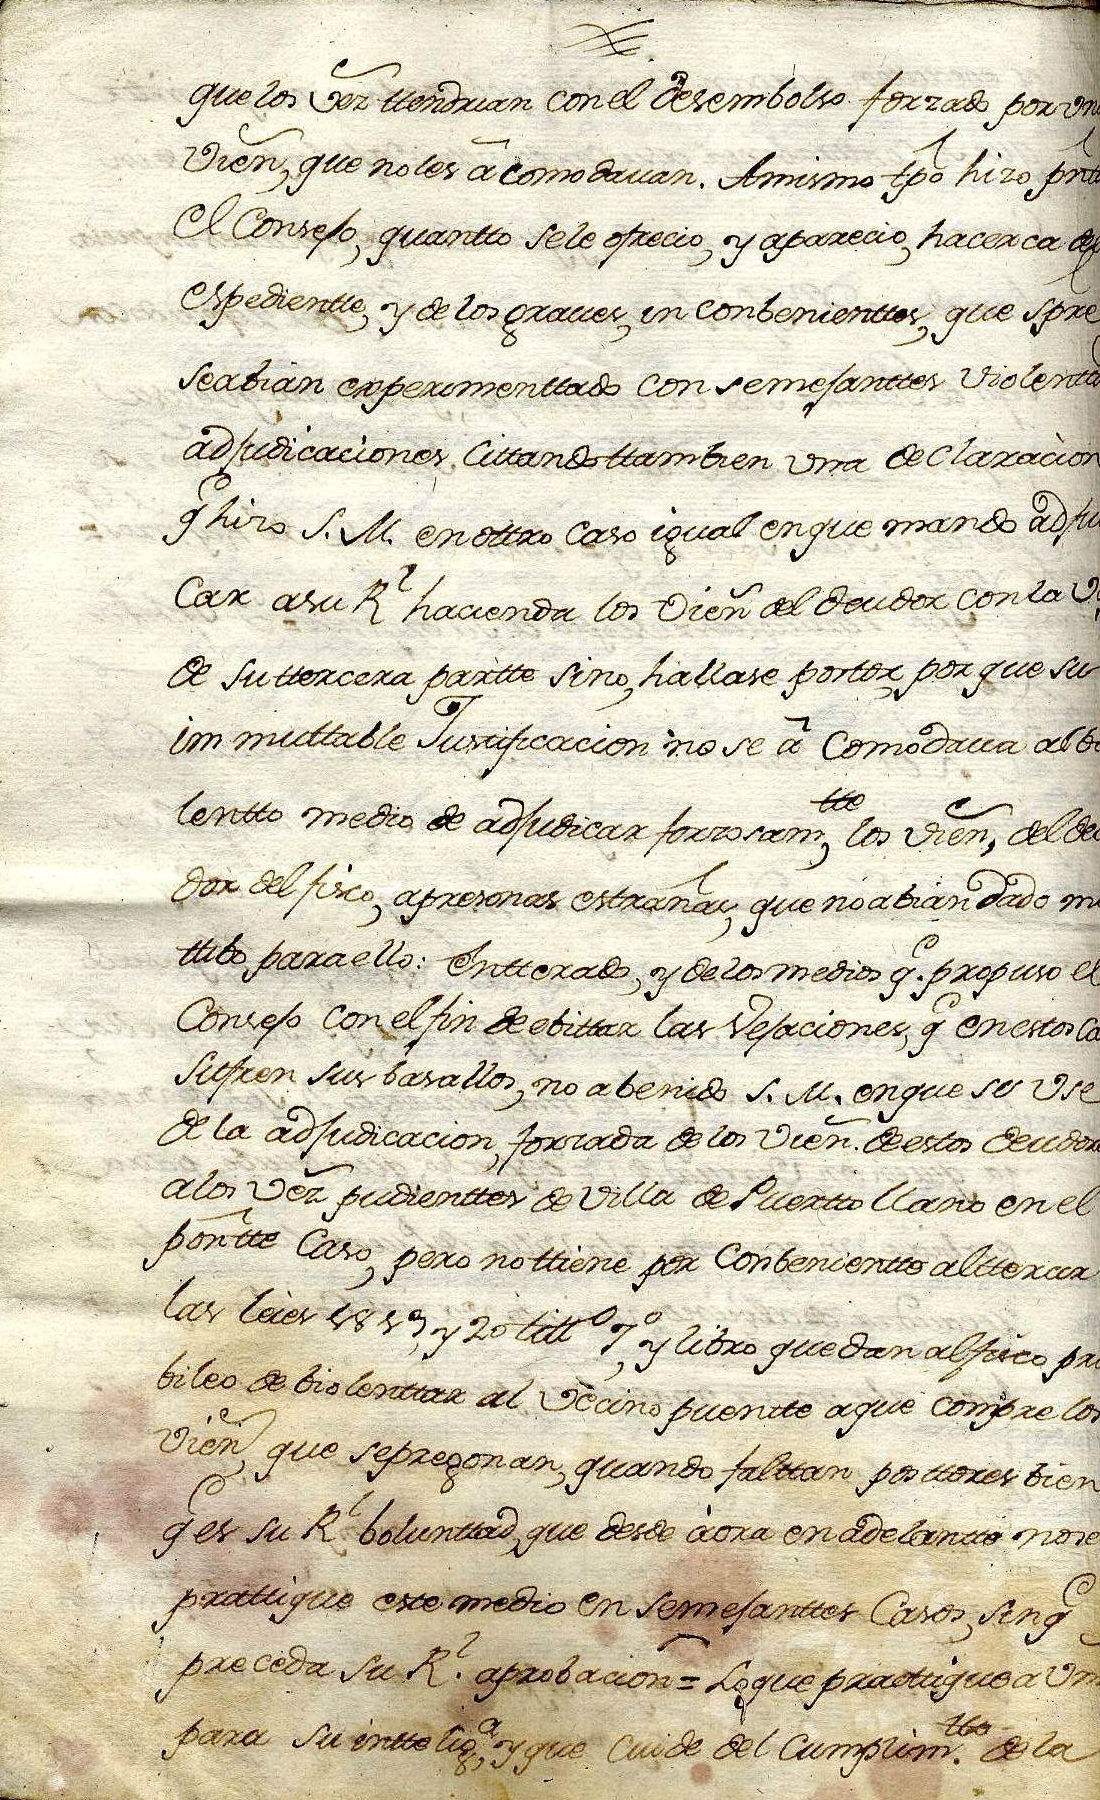 que los Vez̃ ttendrian con el desembolso forzado por un
Vien̄, que no les acomodauan. Amismo tp̄o hizo
el Consejo, quantto se le ofrecio, y aparecio, hacerca del
espedientte, y de los graues, in conbenienttes, que spre
se abian experimenttado con semejanttes violentta
adjudicaciones, Cittando ttambien una declaracion
q̃ hizo S. M. en ottro caso igual en que mando adju
car a su Rl hacienda los Vien̄ del deudor con la
de su ttercera partte sino, hallase postor, por que su
im muttable Justificacion no se acomodaua al bi
lentto medio de adjudicar forzosamtte, los vien̄, del deu
dor del fisco, apresonas estrañas, que no abian dado mo
ttibo para ello: Entterado, y de los medios q̃. propuso el
Consejo con el fin de ebittar las Vejaciones, q̃ en estos ca
sufren sus basallos, no a benido S. M. en que su Use
de la adjudicacion, forzada de los Vien̄. de estos deudore
a los Vez̃ pudienttes de Villa de Puertto llano en el
pn̄tte Caso, pero no ttiene por Conbenientte altterar
las leies 18 19, y 20 titto 7º, y libro que dan al fisco pri
bileo de biolenttar al Vecino puentte a que compre los
Vien̄, que se pregonan, quando falttan posttores bien
q̃ es su Rl boluntad, que desde aora en adelantte no se
prattique este medio en semejanttes Casos, sin q̃
preceda su Rl. aprobacion = Lo que practtigue a Vm
para su inttelig̃a, y que cuide del Cumplimtto. de la